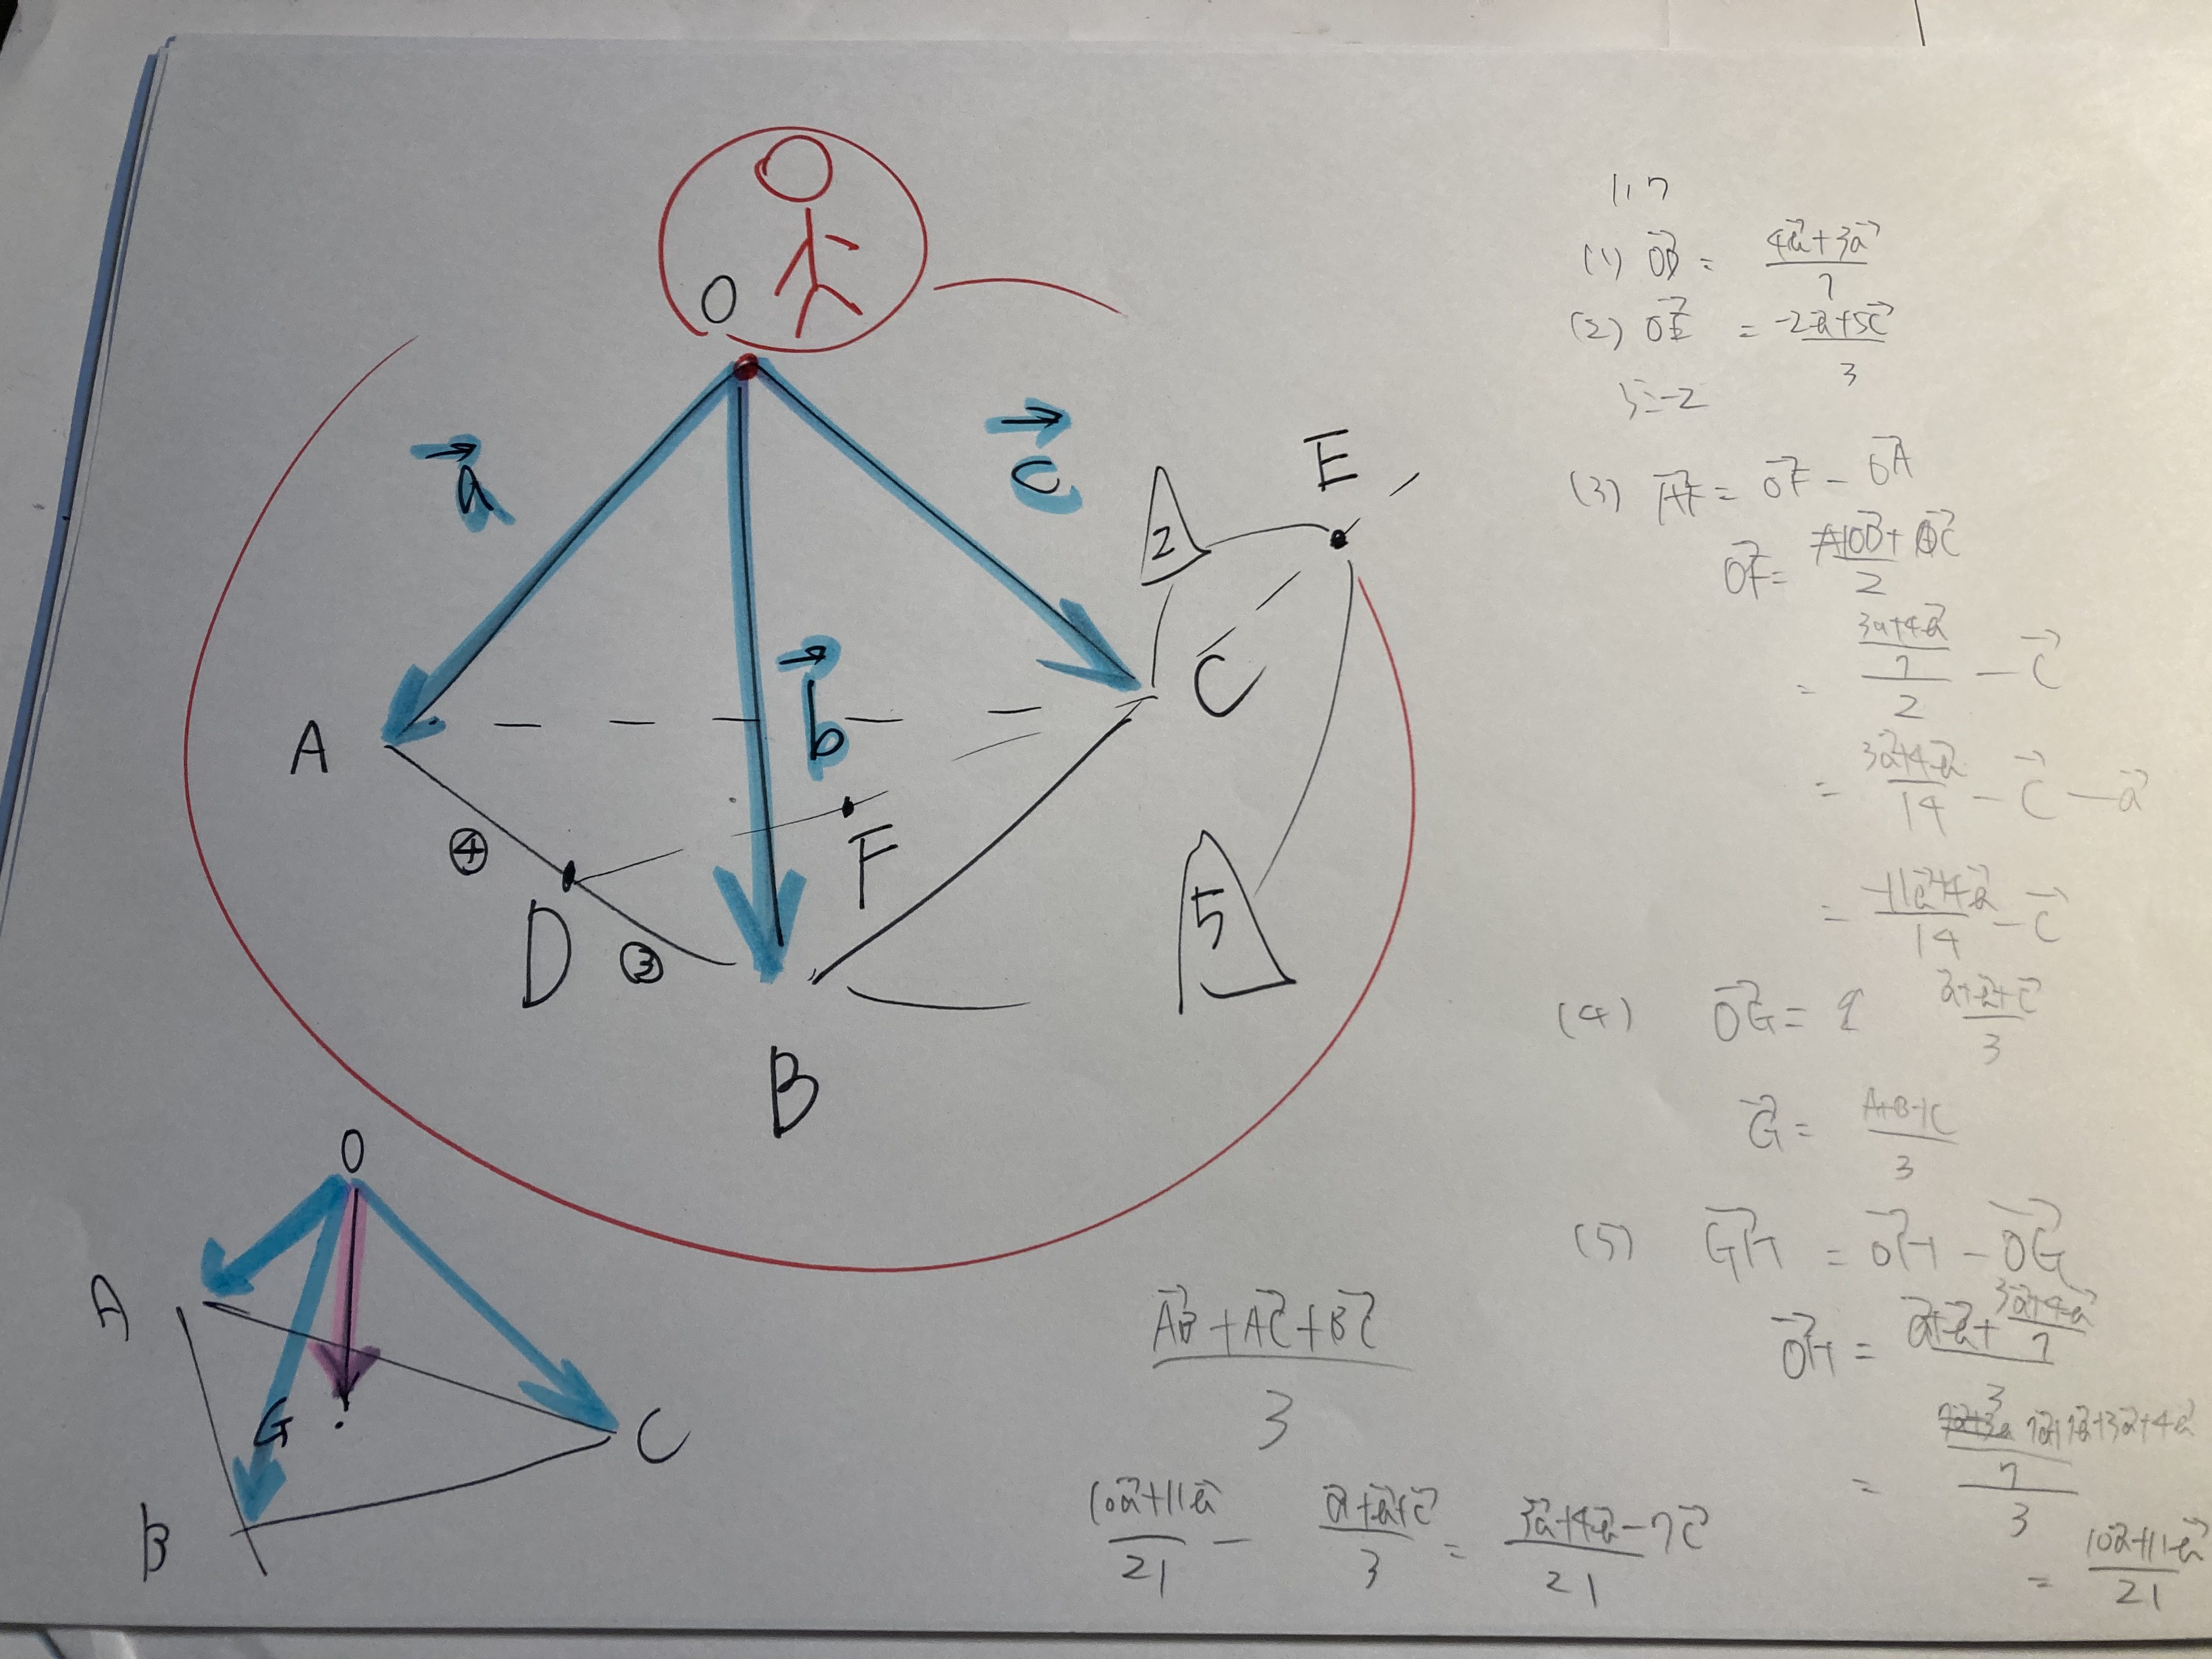 O
→
a
→
c
→
b
A
B
C
D
E
F
④
③
2
5
O
A
B
C
G
(1) OD = 4b+3a / 7
(2) OE = -2b+5c / 3
5:-2
(3) AF = OF - OA
OF = OD + OC / 2
= 3a+4b / 7 / 2 - c
= 3a+4b / 14 - c - a
= -11a+4b / 14 - c
(4) OG = a+b+c / 3
G = A+B+C / 3
(5) GH = OH - OG
OH = a+b+ 3a+4b / 7 / 3
= 7a+7b+3a+4b / 7 / 3
= 10a+11b / 21
AB + AC + BC / 3
10a+11b / 21 - a+b+c / 3 = 3a+4b-7c / 21